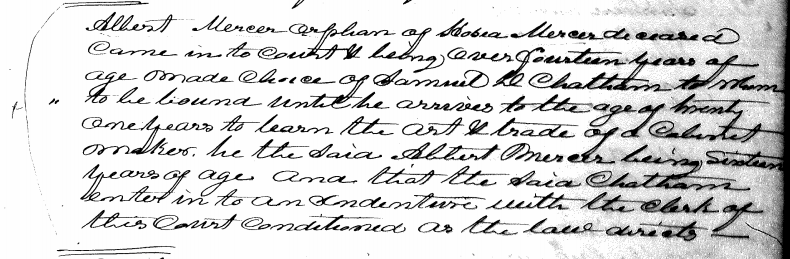 Albert Mercer orphan of Hosea Mercer deceased
Came in to Court & being over fourteen years of
age made Choice of Samuel D Chatham to whom
" to be bound until he arrives to the age of twenty
one years to learn the art & trade of a Cabinet
maker. he the said Albert Mercer being Sixteen
years of age and that the said Chatham
enter in to an Indenture with the Clerk of
this Court Conditioned as the law directs —